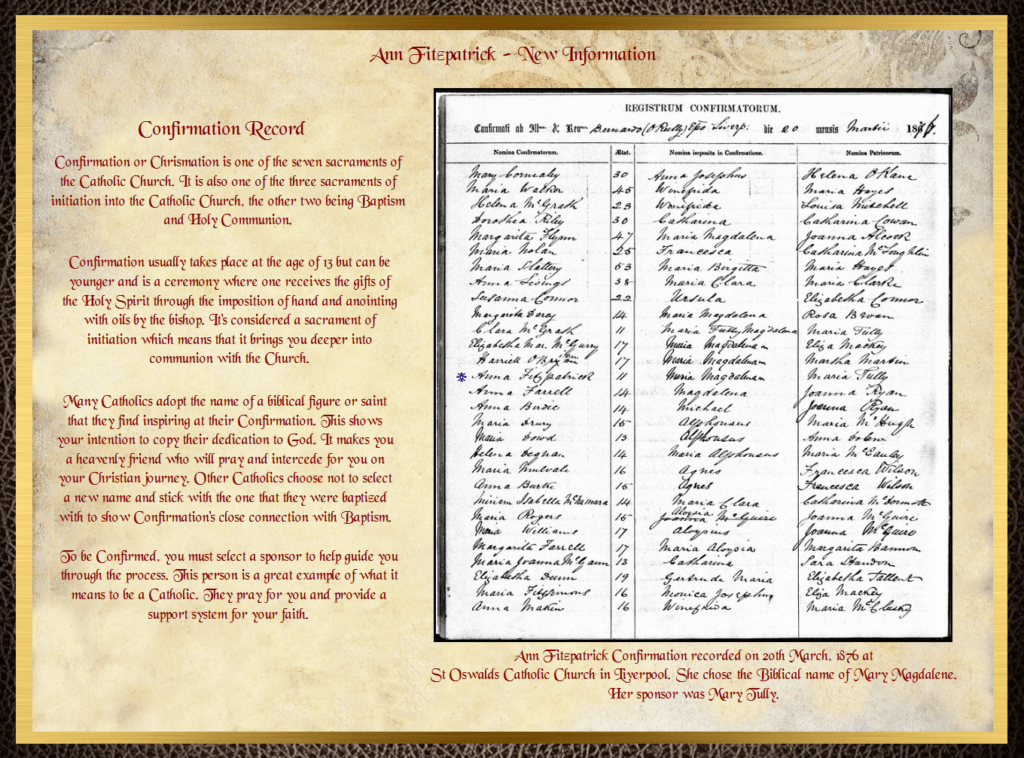 Ann Fitzpatrick - New Information
Confirmation Record
Confirmation or Chrismation is one of the seven sacraments of
the Catholic Church. It is also one of the three sacraments of
initiation into the Catholic Church, the other two being Baptism
and Holy Communion.
Confirmation usually takes place at the age of 13 but can be
younger and is a ceremony where one receives the gifts of
the Holy Spirit through the imposition of hand and anointing
with oils by the bishop. It's considered a sacrament of
initiation which means that it brings you deeper into
communion with the Church.
Many Catholics adopt the name of a biblical figure or saint
that they find inspiring at their Confirmation. This shows
your intention to copy their dedication to God. It makes you
a heavenly friend who will pray and intercede for you on
your Christian journey. Other Catholics choose not to select
a new name and stick with the one that they were baptized
with to show Confirmation's close connection with Baptism.
To be Confirmed, you must select a sponsor to help guide you
through the process. This person is a great example of what it
means to be a Catholic. They pray for you and provide a
support system for your faith.
REGISTRUM CONFIRMATORUM.
Confirmati ab Ill & Rev Bernardo (O'Reilly) die 20 mensis Martii 1876.
Nomina Confirmatorum. Ætat. Nomina imposita in Confirmatione. Nomina Patrinorum.
Mary 30 Anna Josephus Helena O'Kane
Maria Walker 45 Winefrida Maria Hayes
Helena McGrath 23 Winefrida Louisa Mitchell
Dorothea Riley 30 Catharina Catharina Cowan
Margarita Flynn 47 Maria Magdalena Joanna Alcock
Maria Nolan 25 Francesca Catharina McLoughlin
Maria Slattery 53 Maria Birgitta Maria Hayes
Anna 38 Maria Clara Maria Clarke
Susanna Connor 22 Ursula Elizabetha Connor
Margarita 14 Maria Magdalena Rosa
Clara McGrath 11 Maria Tully Magdalena Maria Tully
Elizabetha Mar. McGurry 17 Maria Magdalenam Eliza Mackey
Harriett O'Bryen 17 Maria Magdalenam Martha Martin
* Anna Fitzpatrick 11 Maria Magdalenam Maria Tully
Anna Farrell 14 Magdalena Joanna Ryan
Anna 14 Michael Joanna Ryan
Maria Drury 15 Alphonsus Maria McHugh
Maria Dowd 13 Alphonsus Anna
Helena Degnan 14 Maria Alphonsus Maria McCauley
Maria 16 Agnes Francesca Wilson
Anna Burke 15 Agnes Francesca Wilson
Miriam Isabella McNamara 14 Maria Clara Catharina McDermott
Maria Rogers 15 Aloysia Joanna McGuire Joanna McGuire
Maria Williams 17 Aloysius Joanna McGuire
Margarita Farrell 17 Maria Aloysia Margarita Bannon
Maria Joanna McGann 13 Catharina Sara
Elizabetha Dunn 19 Gertrude Maria Elizabetha
Maria Fitzsimons 16 Monica Josephus Eliza Mackey
Anna Makin 16 Winefrida Maria McClusky
Ann Fitzpatrick Confirmation recorded on 20th March, 1876 at
St Oswalds Catholic Church in Liverpool. She chose the Biblical name of Mary Magdalene.
Her sponsor was Mary Tully.